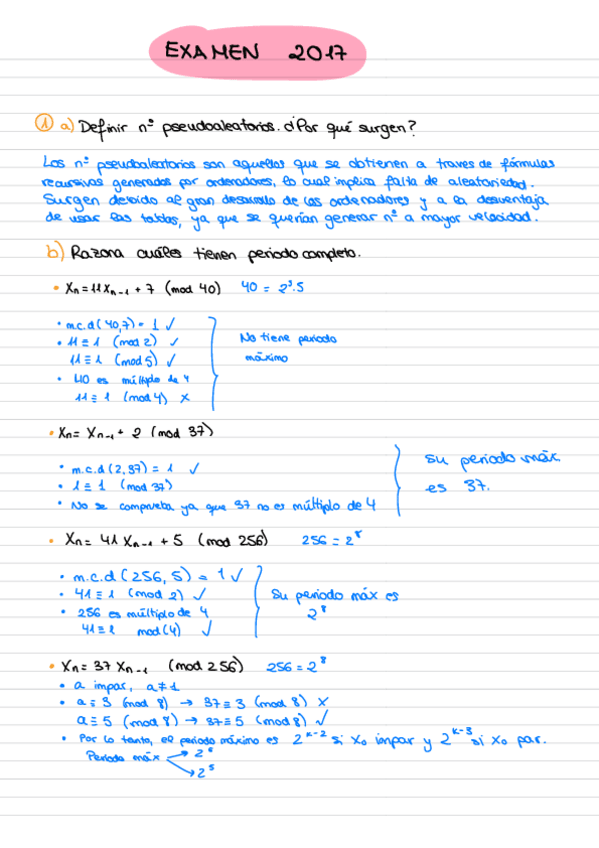 EXAMEN 2017
① a) Definir nº pseudoaleatorios. ¿Por qué surgen?
Los nº pseudoaleatorios son aquellos que se obtienen a traves de fórmulas
recursivas generadas por ordenadores, lo cual implica falta de aleatoriedad.
Surgen debido al gran desarrollo de los ordenadores y a la desventaja
de usar las tablas, ya que se querían generar nº a mayor velocidad.
b) Razona cuáles tienen periodo completo.
• Xn = 11Xn-1 + 7 (mod 40) 40 = 2³·5
• m.c.d (40,7) = 1 ✓
• 11 ≡ 1 (mod 2) ✓
11 ≡ 1 (mod 5) ✓
• 40 es múltiplo de 4
11 ≡ 1 (mod 4) x
No tiene periodo
máximo
• Xn = Xn-1 + 2 (mod 37)
• m.c.d (2,37) = 1 ✓
• 1 ≡ 1 (mod 37)
• No se comprueba ya que 37 no es múltiplo de 4
su periodo máx.
es 37.
• Xn = 41 Xn-1 + 5 (mod 256) 256 = 2⁸
• m.c.d (256, 5) = 1 ✓
• 41 ≡ 1 (mod 2) ✓
• 256 es múltiplo de 4
41 ≡ 1 mod (4) ✓
Su periodo máx es
2⁸
• Xn = 37 Xn-1 (mod 256) 256 = 2⁸
• a impar, a ≠ 1
• a ≡ 3 (mod 8) → 37 ≡ 3 (mod 8) x
a ≡ 5 (mod 8) → 37 ≡ 5 (mod 8) ✓
• Por lo tanto, el periodo máximo es 2ᴷ⁻² si X₀ impar y 2ᴷ⁻³ si X₀ par.
Periodo máx → 2⁶
→ 2⁵